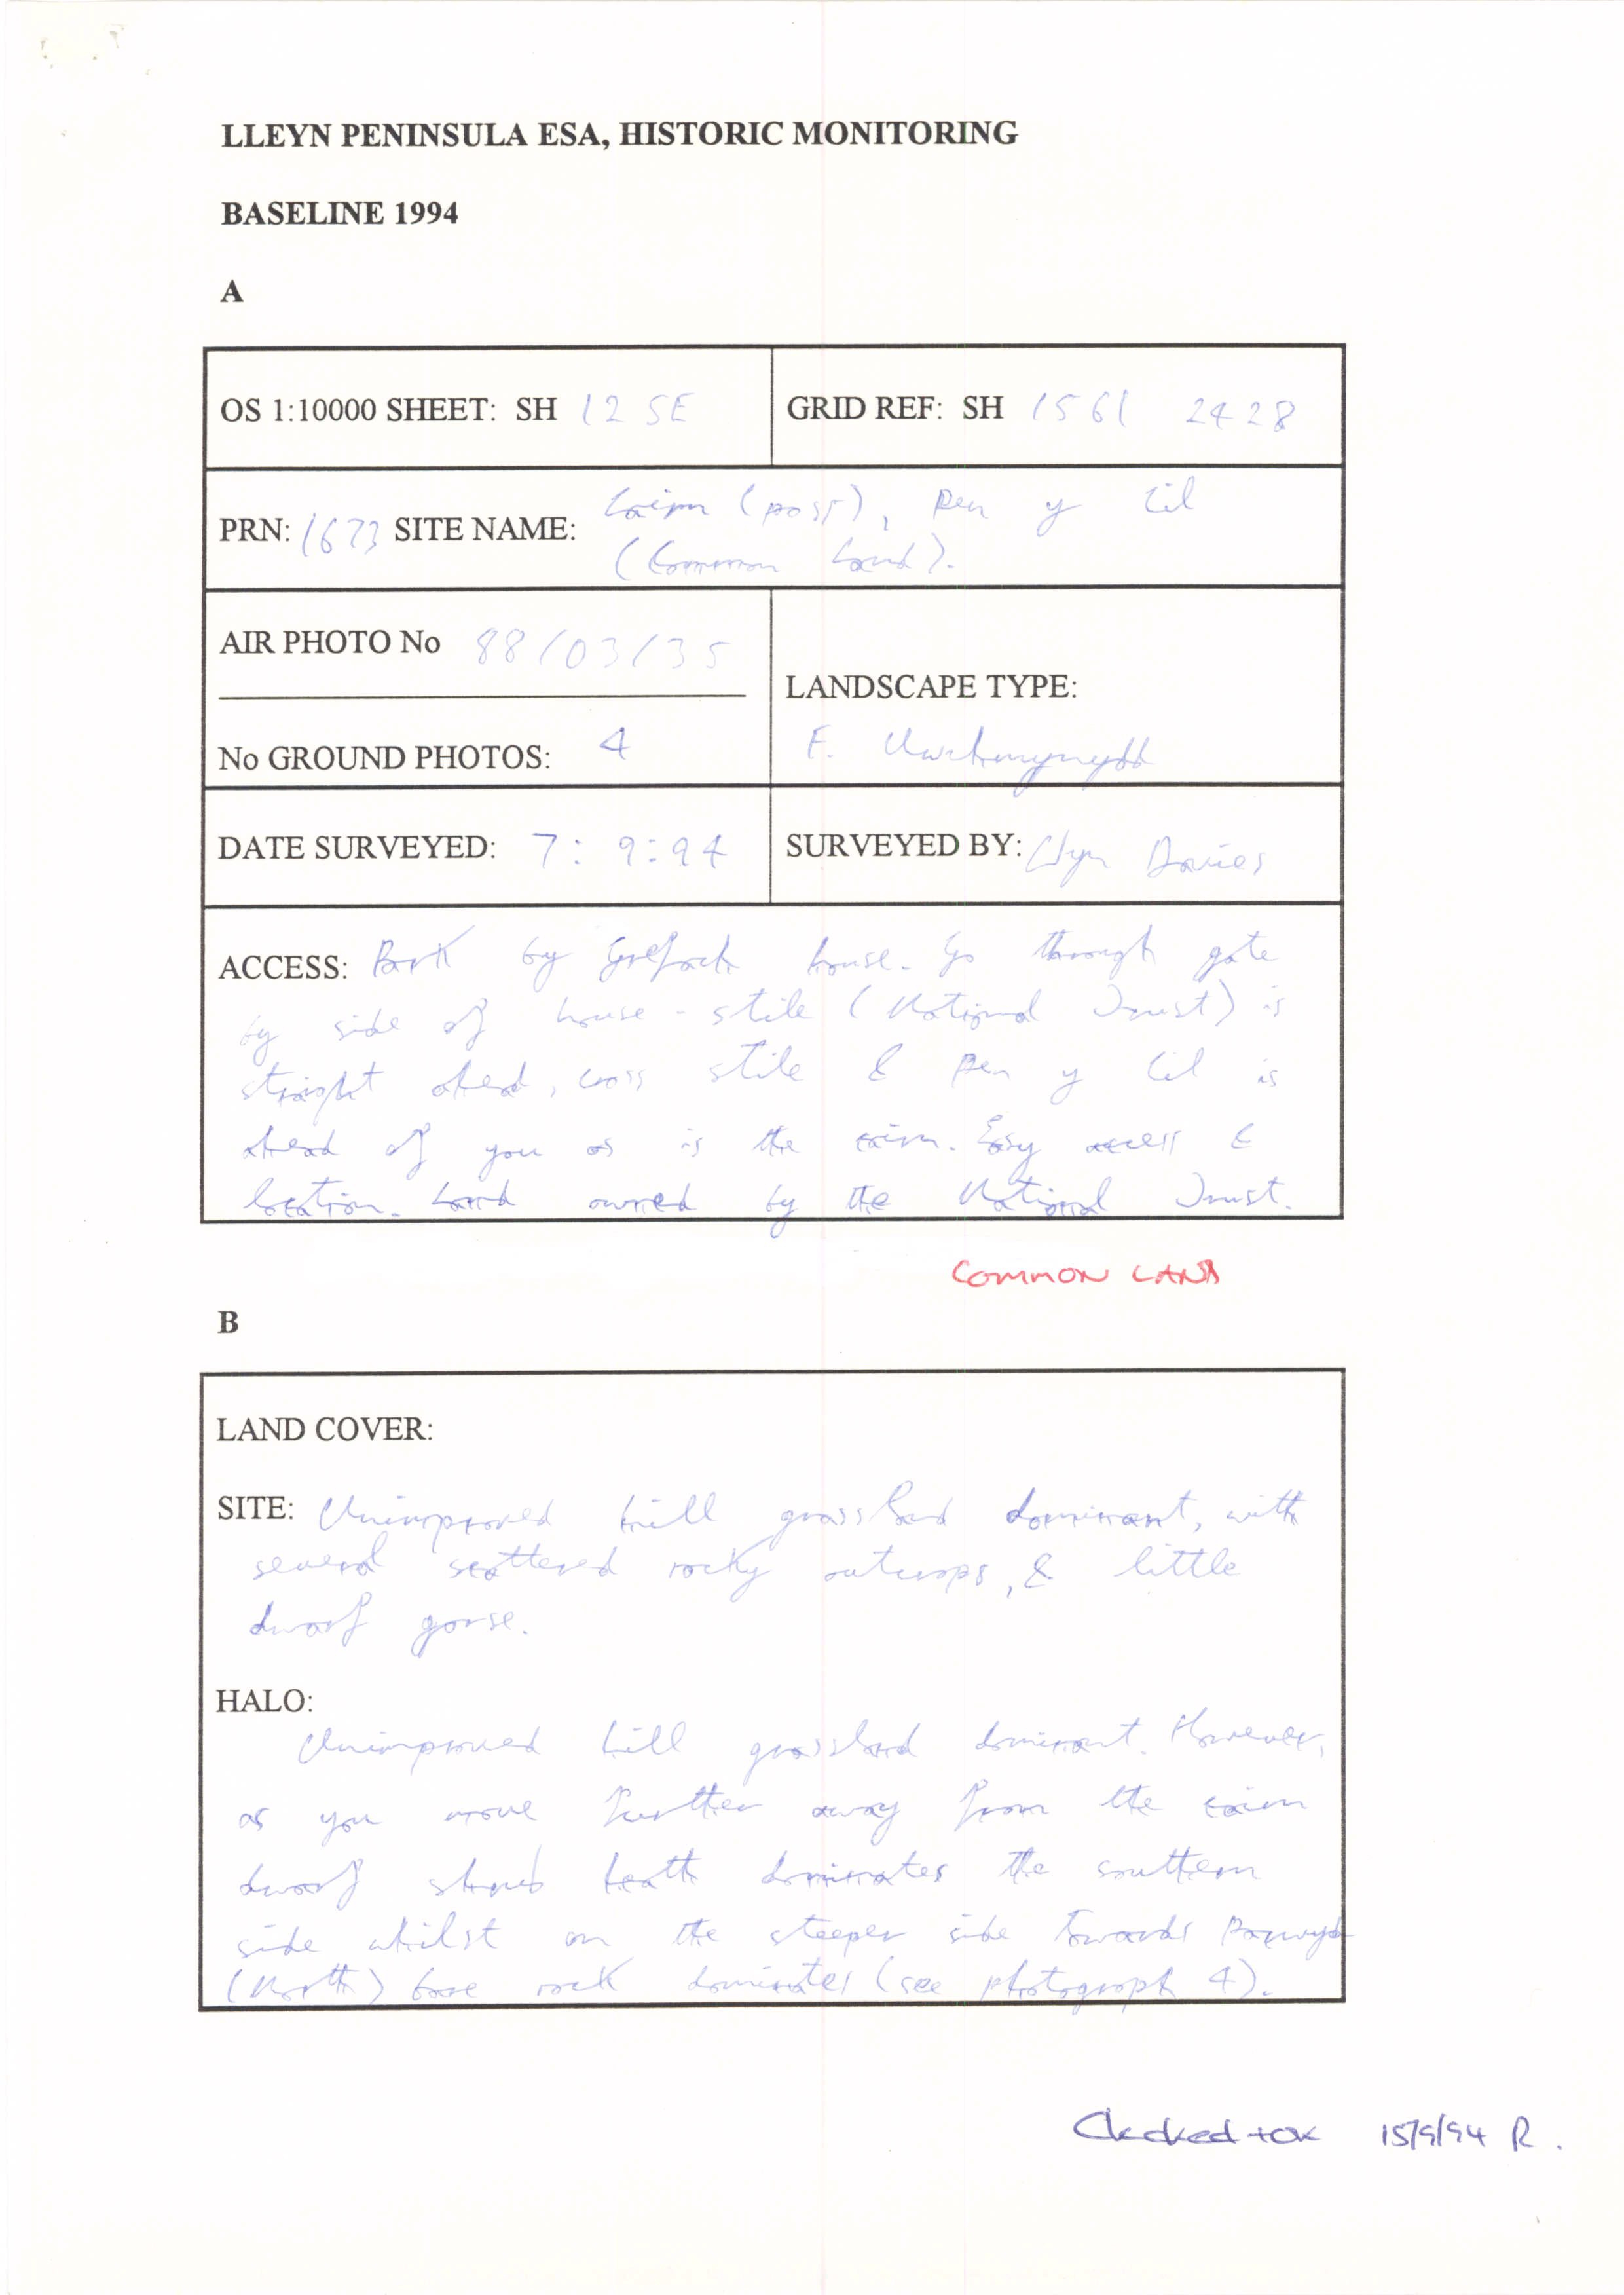 LLEYN PENINSULA ESA, HISTORIC MONITORING
BASELINE 1994
A
OS 1:10000 SHEET: SH 12 SE
GRID REF: SH 1561 2428
PRN: 1673 SITE NAME: Cairn (poss), Pen y Cil
(Common Land).
AIR PHOTO No 88/03/35
LANDSCAPE TYPE:
No GROUND PHOTOS: 4
F. Uwchmynydd
DATE SURVEYED: 7: 9:94
SURVEYED BY: Davies
ACCESS: Park by house. Go through gate
by side of house - stile (National Trust) is
straight ahead, cross stile & Pen y Cil is
ahead of you as is the cairn. Easy access &
location. Land owned by the National Trust.
COMMON LAND
B
LAND COVER:
SITE: Unimproved hill grassland dominant, with
several scattered rocky outcrops, & little
dwarf gorse.
HALO:
Unimproved hill grassland dominant. However,
as you move further away from the cairn
dwarf shrub heath dominates the southern
side whilst on the steeper side towards
(North) bare rock dominates (see photograph 4).
Checked + OK 15/9/94 R.